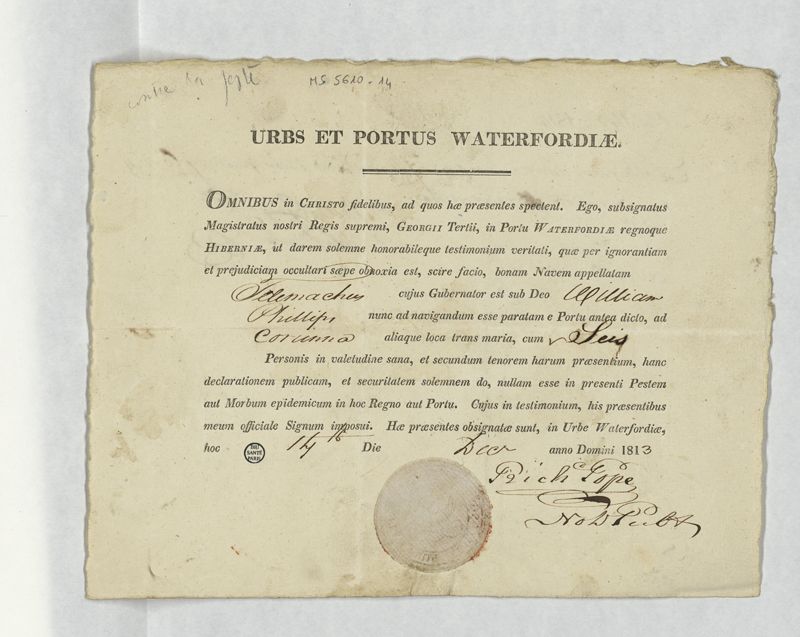 contre la peste
MS 5610-14
URBS ET PORTUS WATERFORDIÆ.
OMNIBUS in CHRISTO fidelibus, ad quos hæ præsentes spectent. Ego, subsignatus
Magistratus nostri Regis supremi, GEORGII Tertii, in Portu WATERFORDIÆ regnoque
HIBERNIÆ, ut darem solemne honorabileque testimonium veritati, quæ per ignorantiam
et prejudiciam occultari sæpe obnoxia est, scire facio, bonam Navem appellatam
Telemachus cujus Gubernator est sub Deo William
Phillips nunc ad navigandum esse paratam e Portu antea dicto, ad
Corunna aliaque loca trans maria, cum Seis
Personis in valetudine sana, et secundum tenorem harum præsentium, hanc
declarationem publicam, et securitatem solemnem do, nullam esse in presenti Pestem
aut Morbum epidemicum in hoc Regno aut Portu. Cujus in testimonium, his præsentibus
meum officiale Signum imposui. Hæ præsentes obsignatæ sunt, in Urbe Waterfordiæ,
hoc BIU SANTÉ PARIS 14th Die Decr anno Domini 1813
Richd Pope
Not Pub